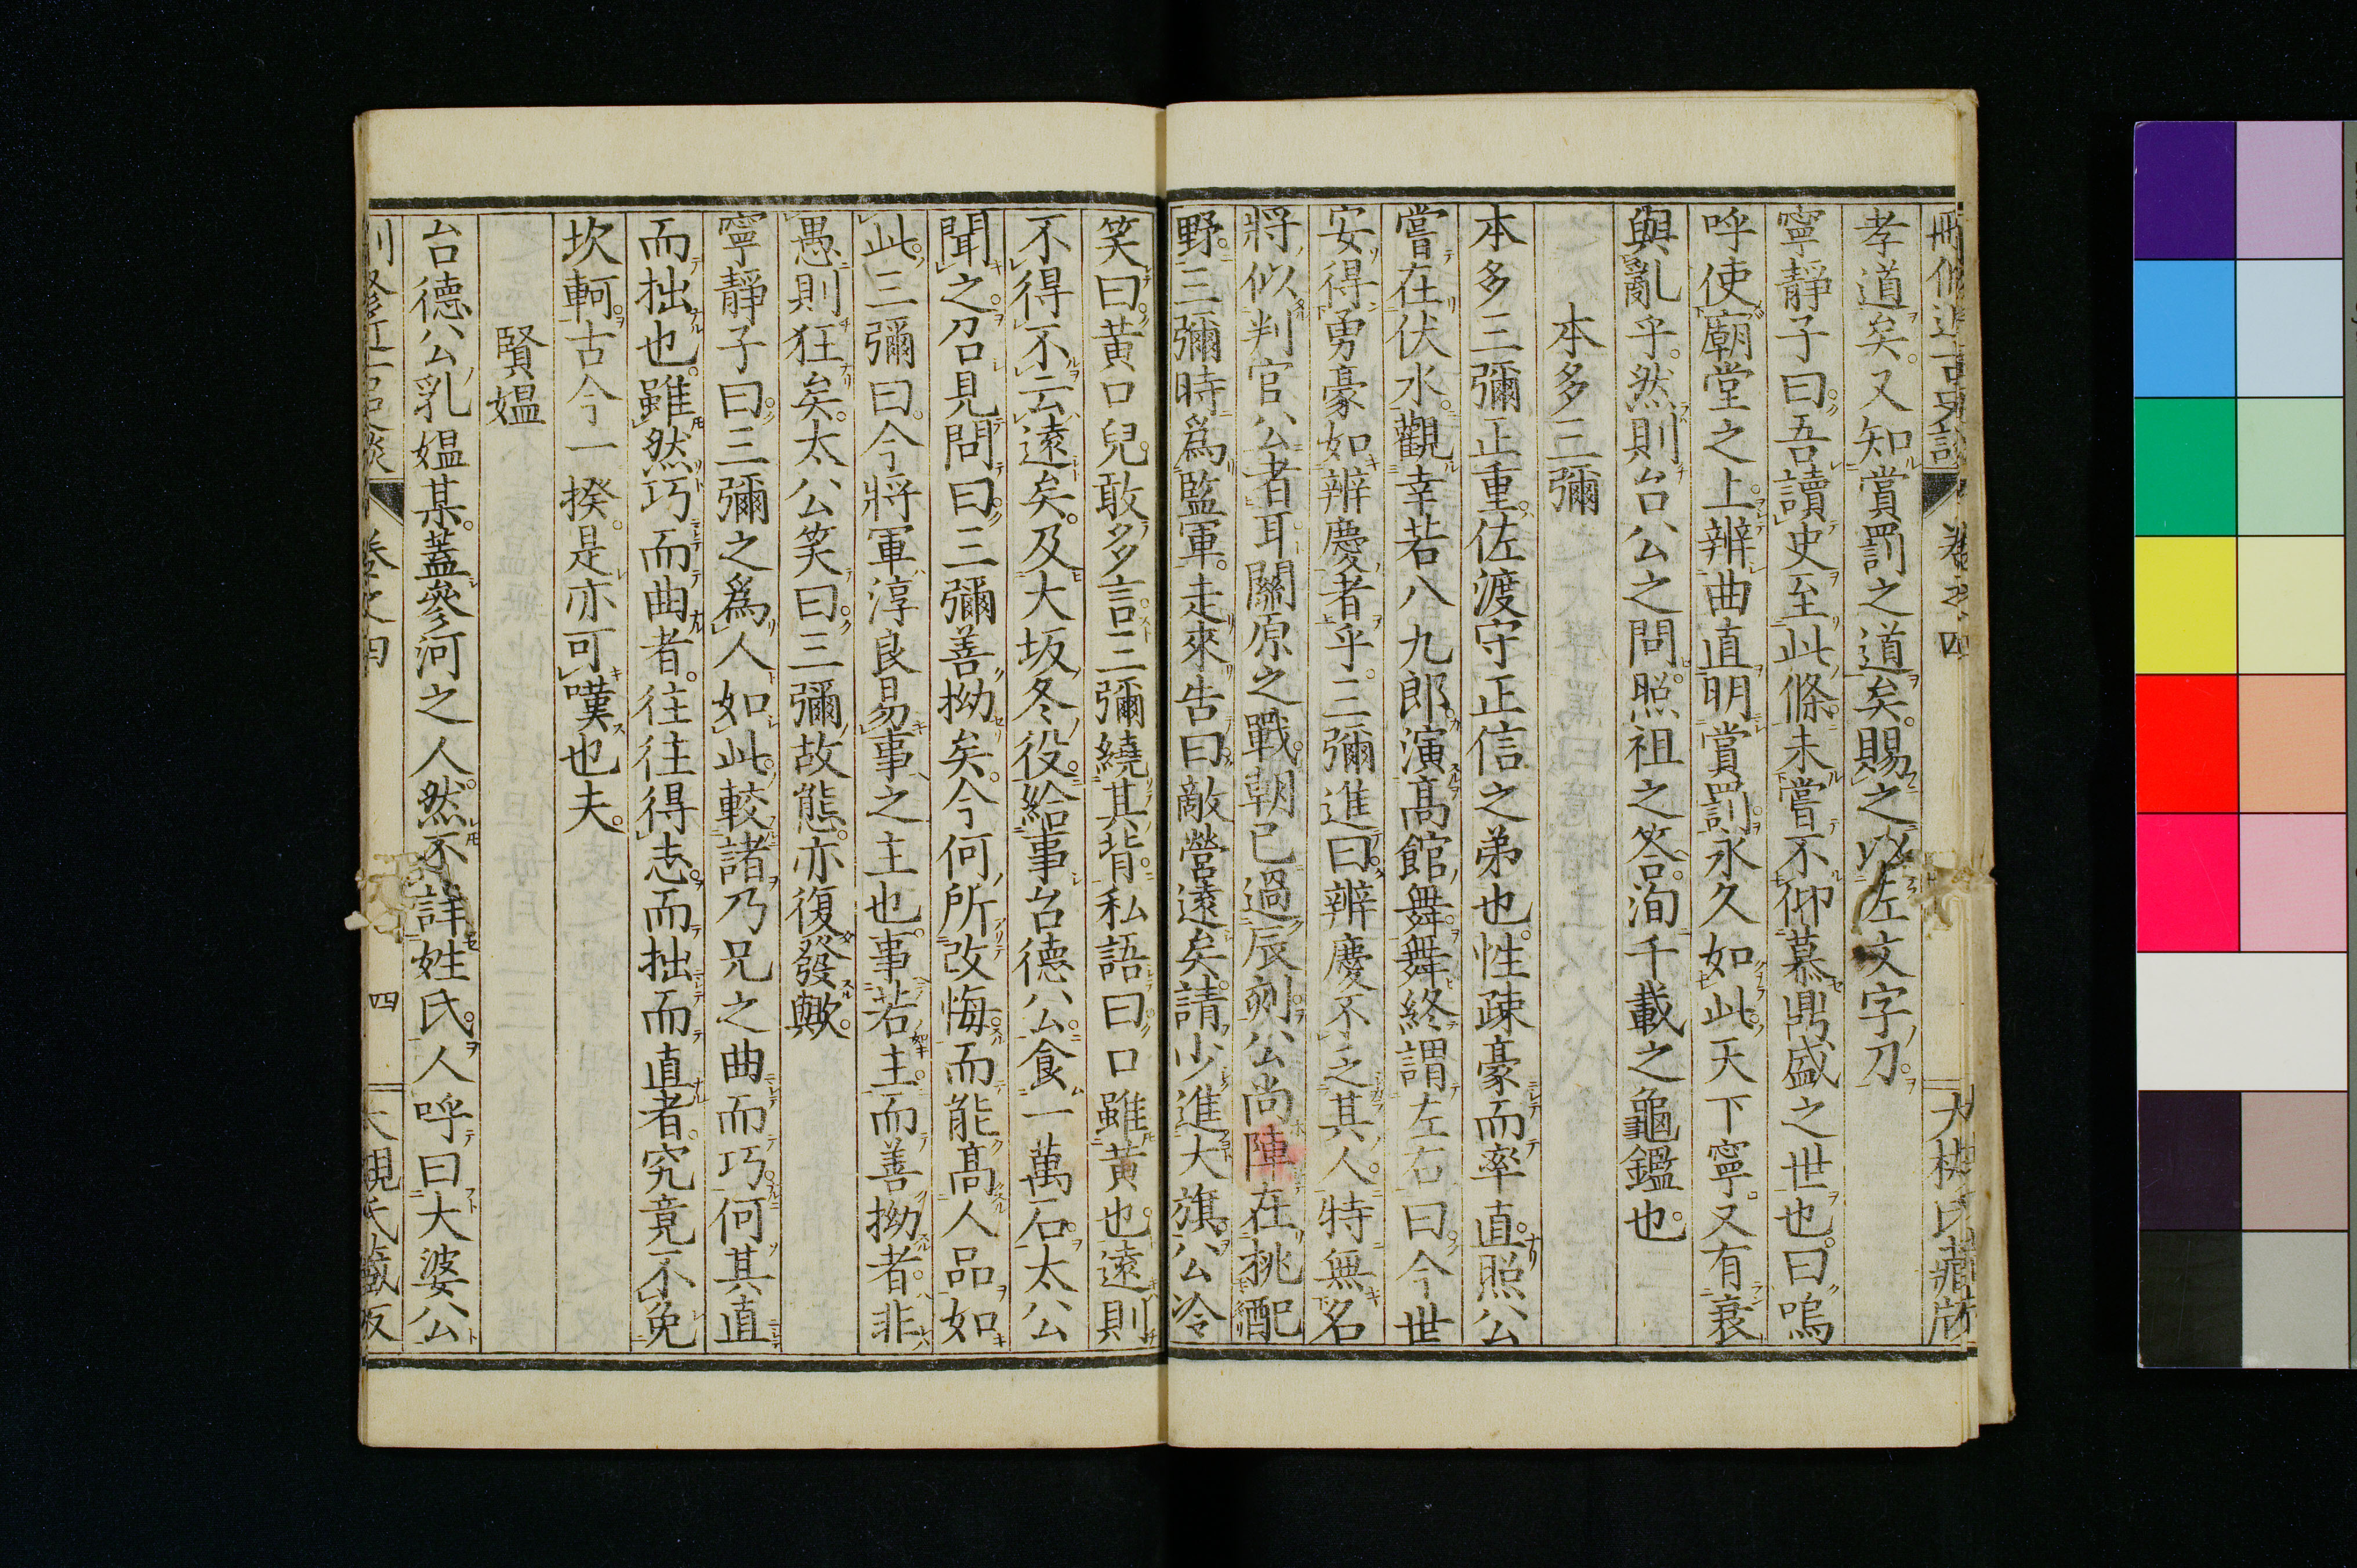 孝道矣。又知賞罰之道矣。賜之以左文字刀。
寧靜子曰。吾讀史至此條。未嘗不仰慕鼎盛之世也。曰嗚
呼使廟堂之上辨曲直。明賞罰。永久如此。天下寧又有衰
與亂乎。然則台公之問。照祖之答。洵千載之龜鑑也。
本多三彌
本多三彌正重。佐渡守正信之弟也。性疎豪而率直。照公
嘗在伏水。觀幸若八九郎演高館舞。舞終謂左右曰。今世
安得勇豪如辨慶者乎。三彌進曰。辨慶不乏其人。特無名
將似判官公者耳。關原之戰。朝已過辰刻。公尚陣在桃配
野。三彌時爲監軍。走來告曰。敵營遠矣。請少進大旗。公冷
笑曰。黃口兒。敢多言。三彌繞其背。私語曰。口雖黃也。遠則
不得不云遠矣。及大坂冬役。給事台德公。食一萬石。太公
聞之。召見問曰。三彌善拗矣。今何所改悔。而能高人品如
此。三彌曰。今將軍淳良易事之主也。事若主而善拗者。非
愚則狂矣。太公笑曰。三彌故態。亦復發歟。
寧靜子曰。三彌之爲人如此。較諸乃兄之曲而巧。何其直
而拙也。雖然巧而曲者。往往得志。而拙而直者。究竟不免
坎軻。古今一揆。是亦可嘆也夫。
賢媼
台德公乳媼某。蓋參河之人。然不詳姓氏。人呼曰大婆。公
卷之四
四